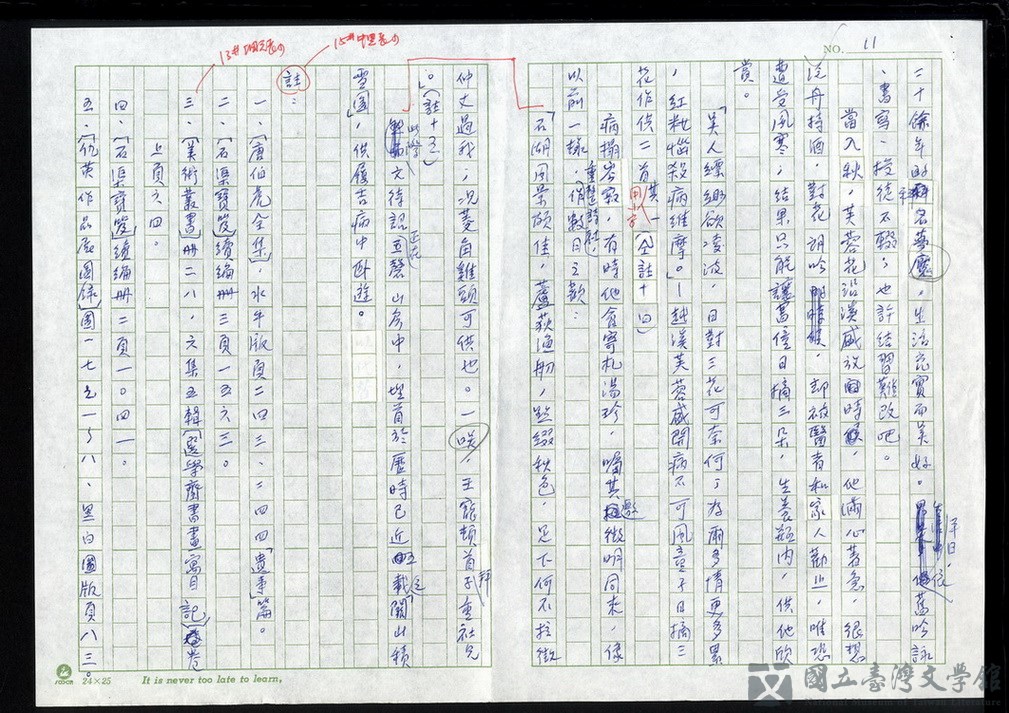 NO. 11
二十餘年的科名夢魘,生活充實而美好。平日,依舊吟詠
、書寫、授徒不輟;也許結習難改吧。
當入秋,芙蓉花沿溪盛放時,他滿心著急,很想
泛舟持酒,對花朗吟,却被醫者和家人勸止,唯恐
遭受風寒;結果只能讓舊僮日摘三朵,生養瓶內,供他欣
賞。
「美人縹緲欲凌波,日對三花可奈何;為爾多情更多累
,紅粧惱殺病維摩。」—越溪芙蓉盛開病不可風童子日摘三
花作供二首其一(仝註十四)
用小字
病榻岑寂,有時他會寄札湯珍,囑其邀徵明同來,像
以前一樣,重整詩社,作數日之歡:
「石湖風景頗佳,蘆荻漁舠,點綴秋色,足下何不拉徵
仲丈過我;況菱角雞頭可供也。—咲,王寵頓首子重社兄
。」(註十三)
此際,文待詔正在玉磬山房中,埋首於歷時已近五載的「關山積
雪圖」,供履吉病中臥遊。
15#中黑長的
13#細元長的
註:
一、「唐伯虎全集」,水牛版頁二四三、二四四「遺事」篇。
二、「石渠寶笈」續編冊三頁一五六三。
三、「美術叢書」冊二八,六集五輯「選學齋書畫寓目記」卷
上頁六四。
四、「石渠寶笈」續編冊二頁一〇四一。
五、「仇英作品展圖錄」圖一七之一~八、黑白圖版頁八三。
24×25 It is never too late to learn,
國立臺灣文學館
National Museum of Taiwan Literature